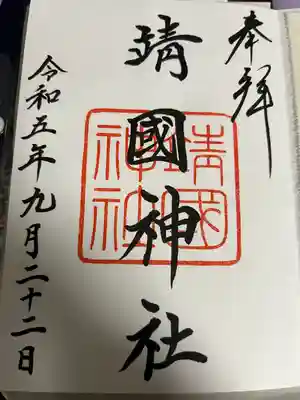 奉拝
靖國神社
靖国神社
令和五年九月二十二日